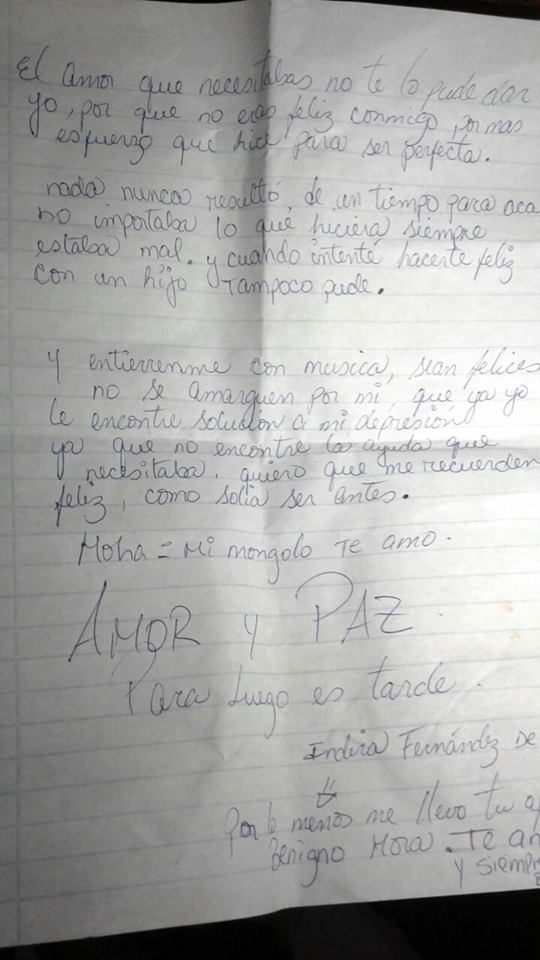 El amor que necesitabas no te lo pude dar
yo, por que no eras feliz conmigo, por mas
esfuerzo que hice para ser perfecta.
nada nunca resultó, de un tiempo para aca
no importaba lo que hiciera siempre
estaba mal. y cuando intenté hacerte feliz
con un hijo Tampoco pude.
y entierrenme con musica, sean felices
no se amarguen por mi, que ya yo
le encontre solución a mi depresión
ya que no encontre la ayuda que
necesitaba, quiero que me recuerden
feliz, como solia ser antes.
Moha = Mi mongolo Te amo.
AMOR y PAZ.
Para Luego es tarde.
Indira Fernández De
Por lo menos me llevo tu
Benigno Mora. Te
y siempre